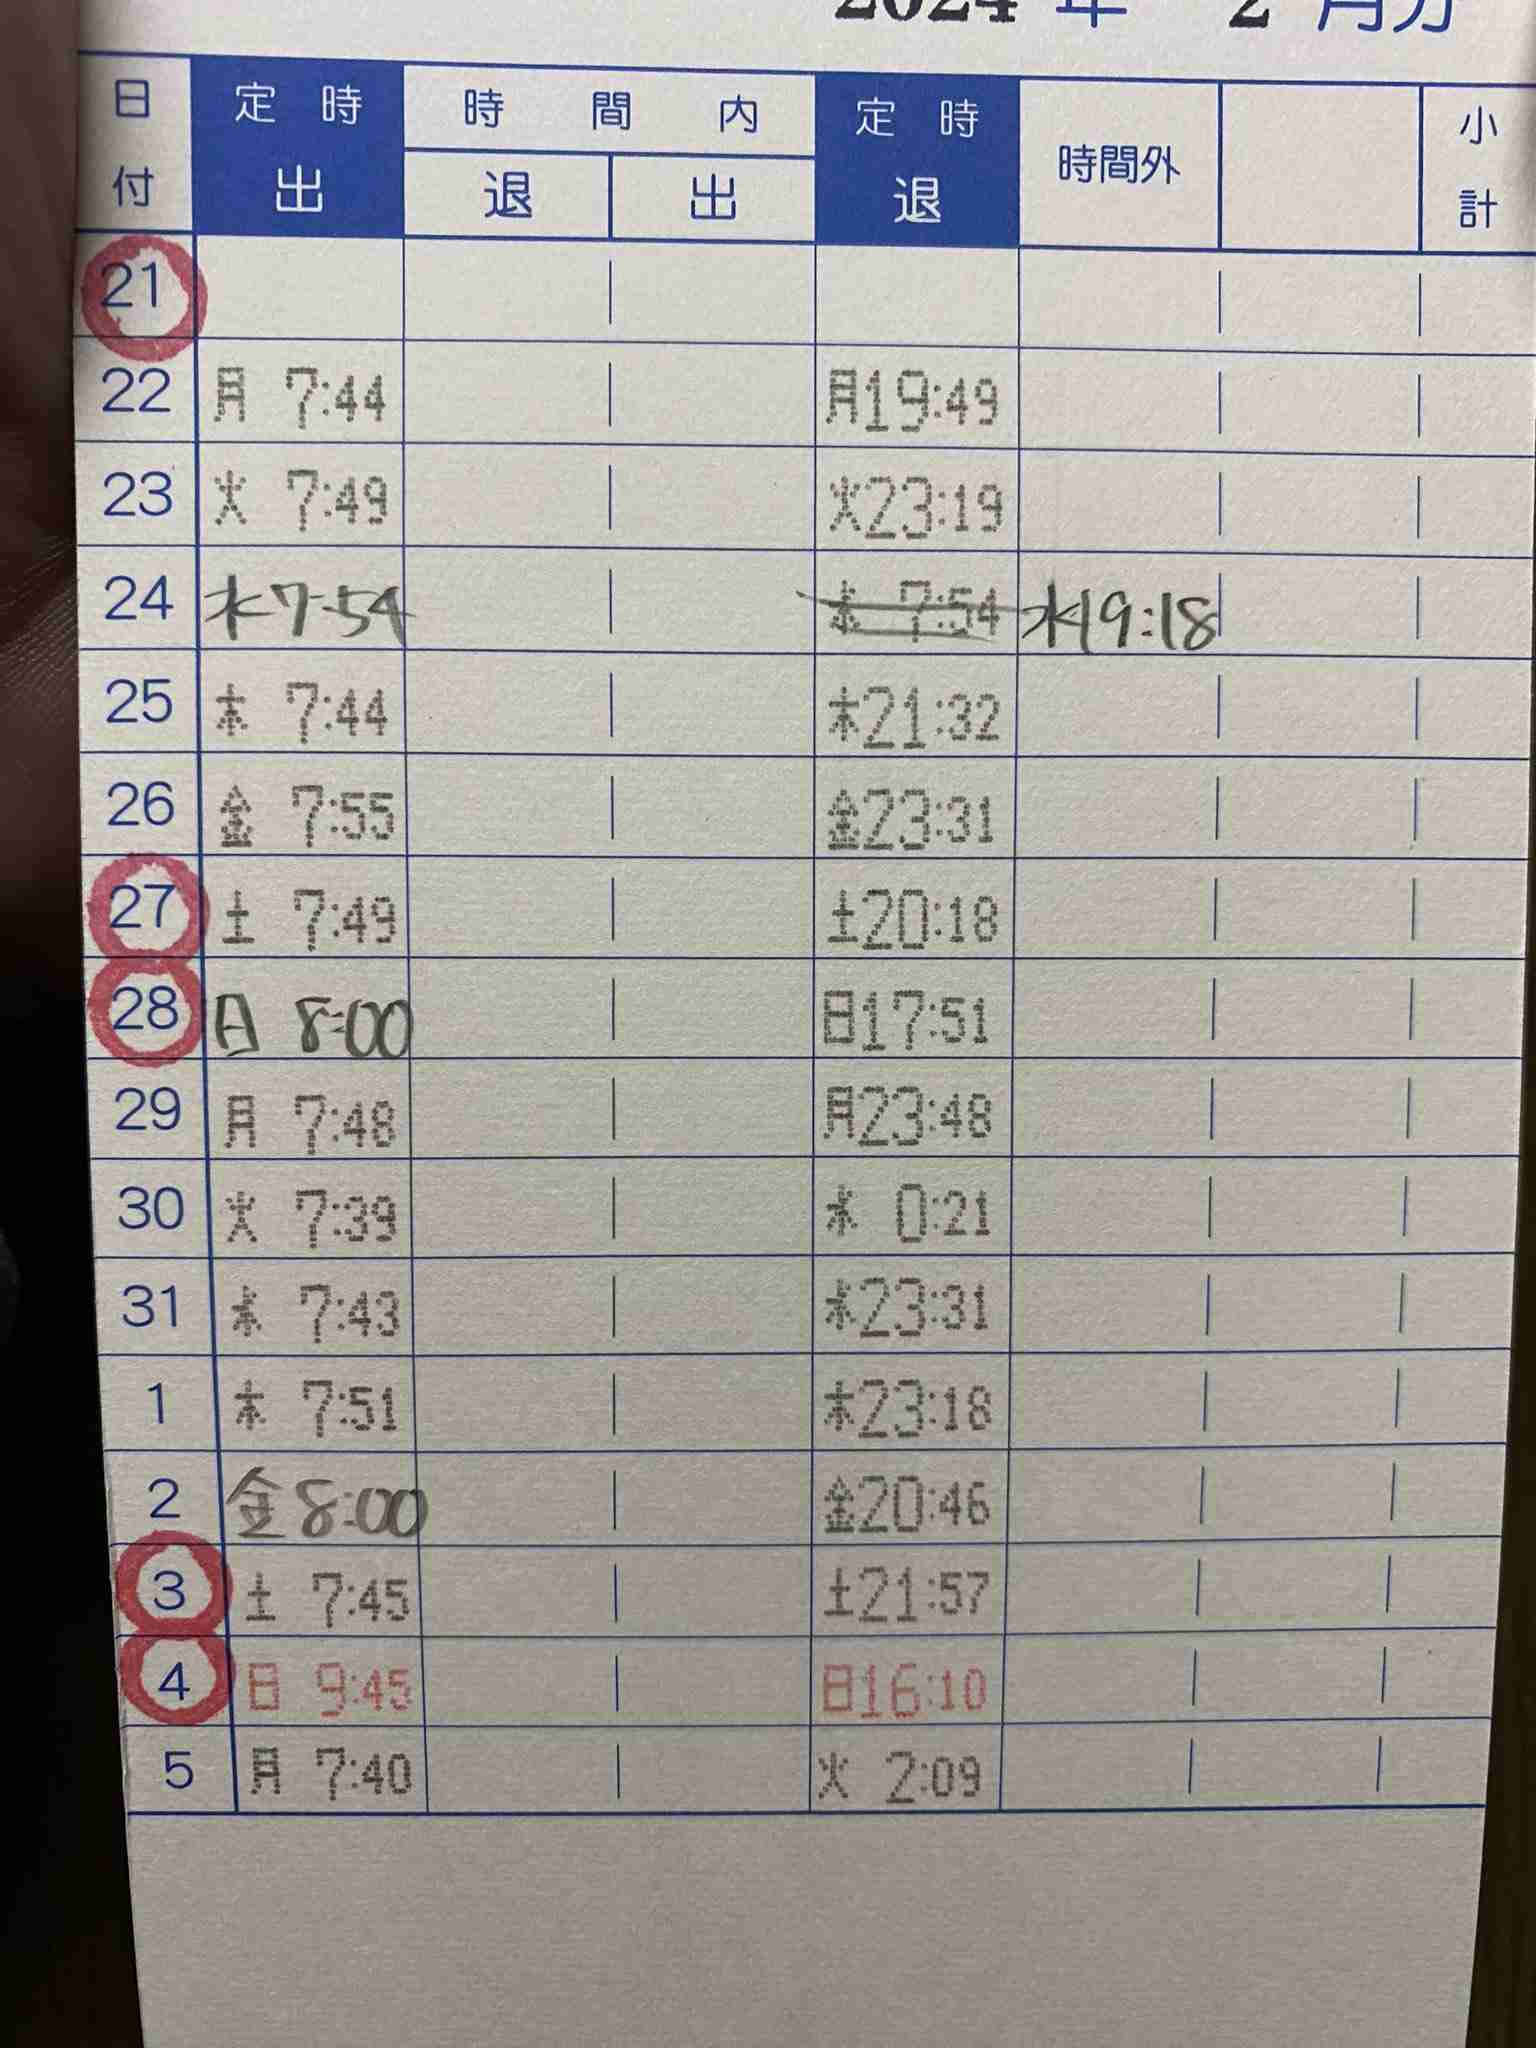 2024 年 2 月分
日付 定時出 時間内 退 出 定時退 時間外 小計
21
22 月 7:44 月19:49
23 火 7:49 火23:19
24 水7:54 水 7:54 水19:18
25 木 7:44 木21:32
26 金 7:55 金23:31
27 土 7:49 土20:18
28 日 8:00 日17:51
29 月 7:48 月23:48
30 火 7:39 水 0:21
31 水 7:43 水23:31
1 木 7:51 木23:18
2 金8:00 金20:46
3 土 7:45 土21:57
4 日 9:45 日16:10
5 月 7:40 火 2:09